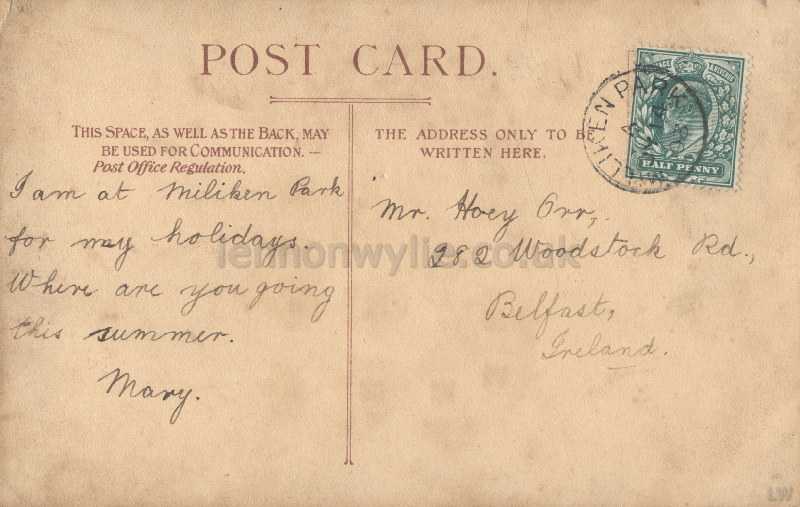 POST CARD.
THIS SPACE, AS WELL AS THE BACK, MAY
BE USED FOR COMMUNICATION. —
Post Office Regulation.
THE ADDRESS ONLY TO BE
WRITTEN HERE.
HALF PENNY
PARK
I am at Miliken Park
for my holidays.
Where are you going
this summer.
Mary.
Mr. Hoey Orr,
282 Woodstock Rd.,
Belfast,
Ireland.
lennonwylie.co.uk
LW